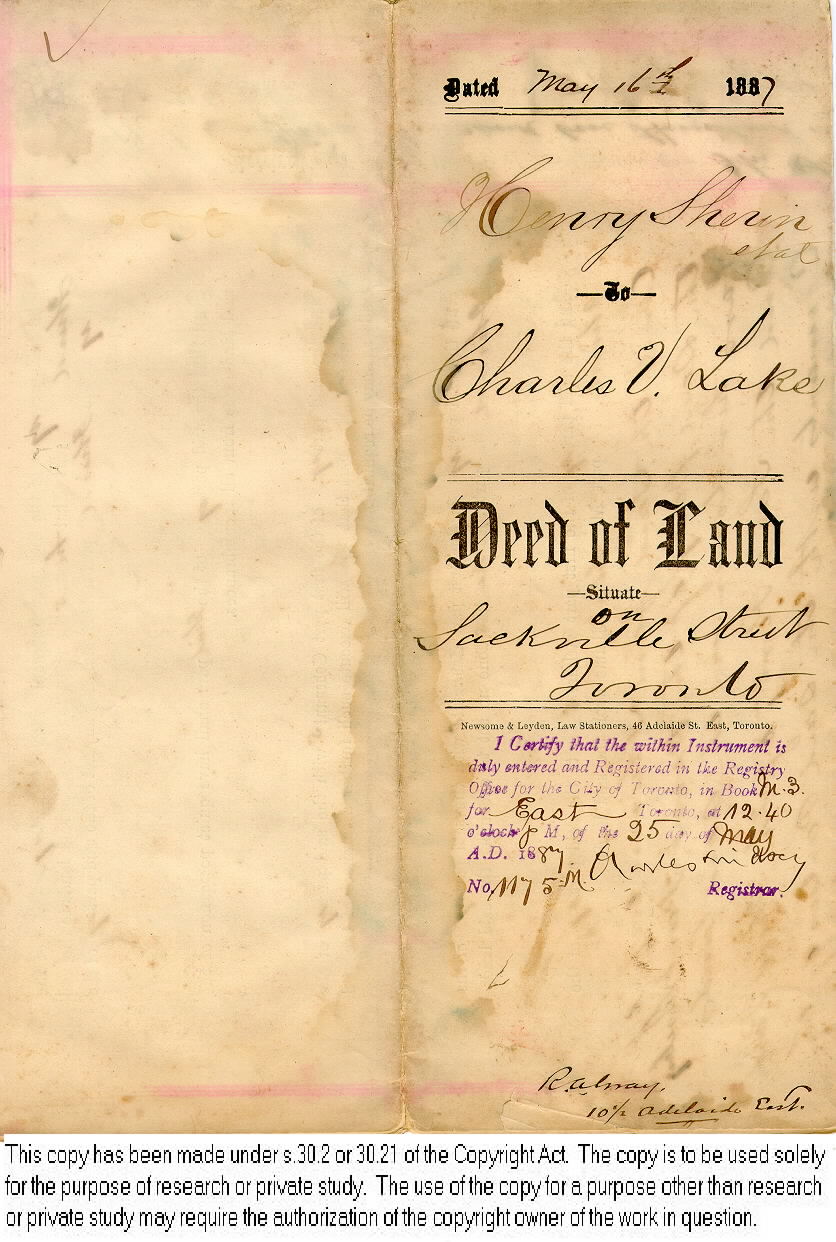 Dated May 16th 1887
Henry Sherin
et al
—To—
Charles V. Lake
Deed of Land
—Situate—
on
Sackville Street
Toronto
Newsome & Leyden, Law Stationers, 46 Adelaide St. East, Toronto.
I Certify that the within Instrument is
duly entered and Registered in the Registry
Office for the City of Toronto, in Book M.3.
for East Toronto, at 12.40
o'clock P M, of the 25 day of May
A.D. 1887
No, 1175 M Registrar.
10½ Adelaide East.
This copy has been made under s.30.2 or 30.21 of the Copyright Act. The copy is to be used solely
for the purpose of research or private study. The use of the copy for a purpose other than research
or private study may require the authorization of the copyright owner of the work in question.